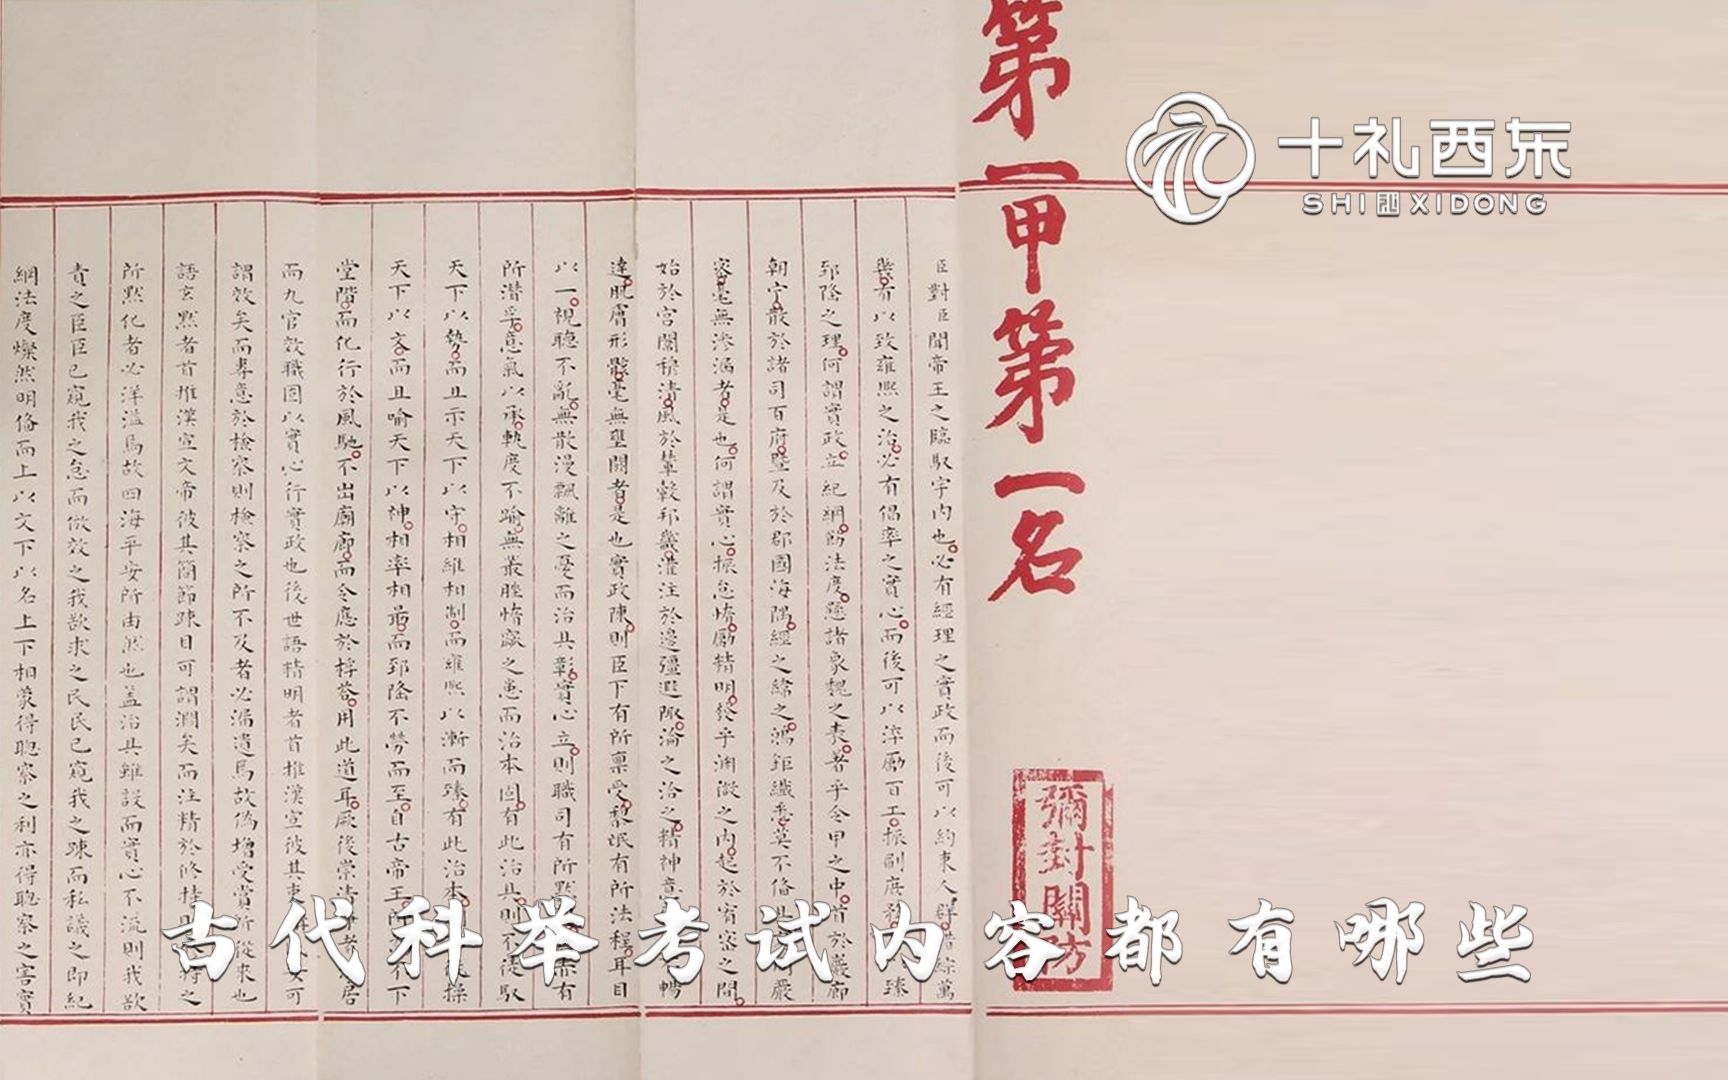 第一甲第一名
彌封關防
十礼西东
SHI XIDONG
臣對臣聞帝王之臨馭宇內也必有經理之實政而後可以約束人群綜萬
幾有以致雍熙之治必有倡率之實心而後可以淬勵百工振刷庶務臻
郅隆之理何謂實政立紀綱飭法度懸諸象魏之表著乎令甲之中首於巖廊
朝宁散於諸司百府暨及於郡國海隅經之緯之鴻鉅纖悉莫不備嚴
密毫無滲漏者是也何謂實心振怠惰勵精明發乎淵微之內起於宥密之間
始於宮闈穆清風於輦轂邦畿灌注於邊疆遐陬淪之洽之精神意暢
達肌膚形骸毫無壅閼者是也實政陳則臣下有所稟受黎氓有所法程耳目
以一視聽不亂無散漫飄離之憂而治具彰實心立則職司有所默赤有
所潛孚意氣以承軌度不踰無叢脞惰窳之患而治本固有此治具則不徒馭
天下以勢而且示天下以守相維相制而雍熙以漸而臻有此治本操
天下以文而且喻天下以神相率相勗而郅隆不勞而至自古帝王所不下
堂階而化行於風馳不出廟廊而令應於桴荅用此道耳厥後崇清者居
而九官效職固以實心行實政也後世語精明者首推漢宣彼其吏安可
謂效矣而專意於檢察則檢察之所不及者必漏遺焉故偽增受賞所從來也
語玄默者首推漢宣文帝彼其簡節疎目可謂濶矣而注精於修持之
所默化者必洋溢焉故四海平安所由然也蓋治具雖設而實心不流則我欲
責之臣臣已窺我之怠而倣效之我欲求之民民已窺我之疎而私議之即紀
綱法度燦然明備而上以文下以名上下相蒙得聰察之利亦得聰察之害實
古代科举考试内容都有哪些